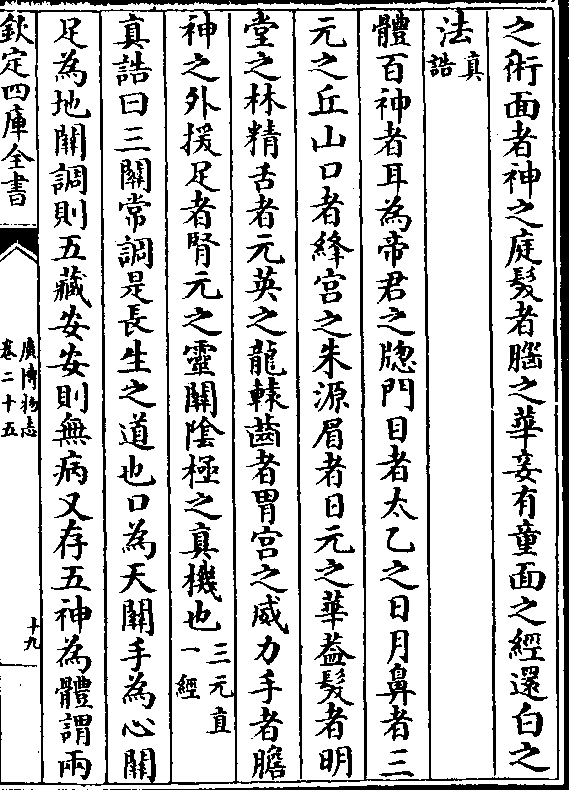 之術面者神之庭髮者腦之華妾有童面之經還白之
法真誥
體百神者耳為帝君之牕門目者太乙之日月鼻者三
元之丘山口者絳宫之朱源眉者日元之華葢髮者明
堂之林精舌者元英之龍轅齒者胃宫之威力手者膽
神之外援足者腎元之靈關陰極之真機也三元直一經
真誥曰三關常調是長生之道也口為天關手為心關
足為地關調則五藏安安則無病又存五神為體謂兩
欽定四庫全書
廣博物志
卷二十五
十九